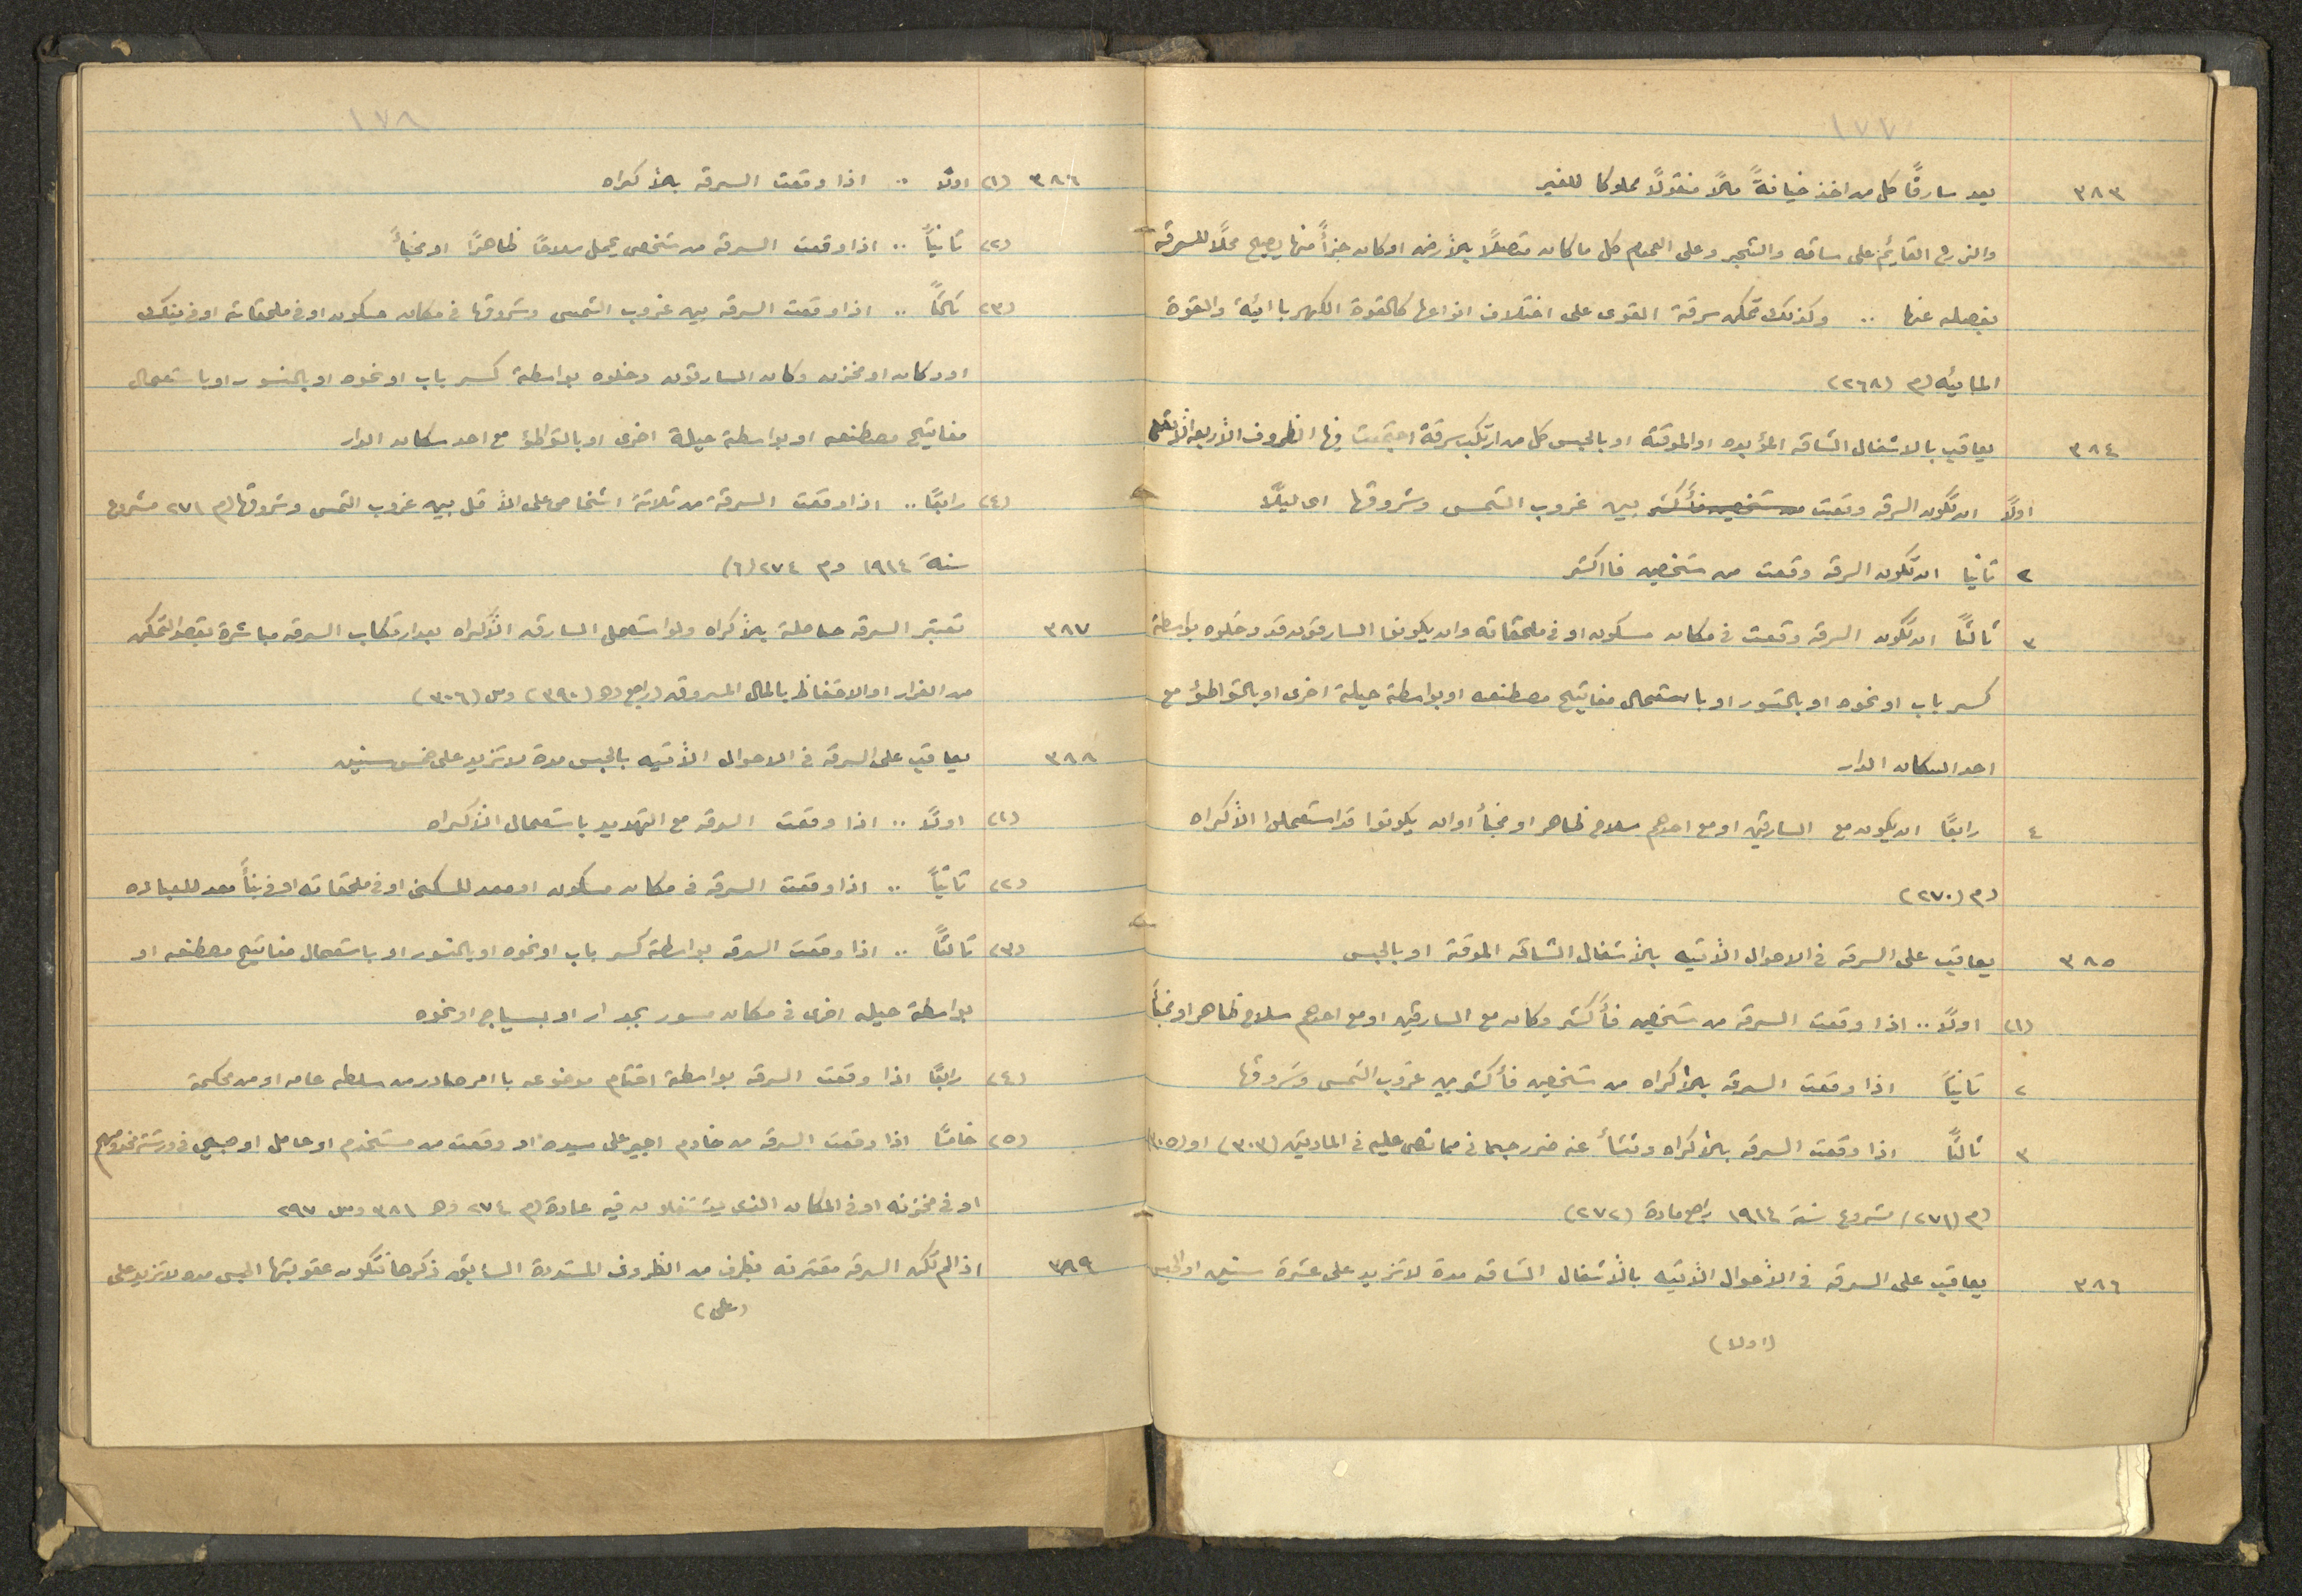 ١٧٧
٣٨٣ يعد سارقًا كل من اخذ خيانةً مالاً منقولاً مملوكا للغير
والزرع القائم على ساقه والشجر وعلى العموم كل ما كان متصلاً بالأرض او كان جزأً منها يصبح محلاً للسرقه
بفصله عنها .. وكذلك تمكن سرقة القوى على اختلاف انواعها كالقوة الكهربائية والقوة
المائيه (م (٢٦٨)
٣٨٤ يعاقب بالاشغال الشاقه المؤبده او الموقتة او بالحبس كل من ارتكب سرقة اجتمعت فيها الظروف الأربعه
اولاً ان تكون السرقه وقعت من شخصين فأكثر بين غروب الشمس وشروقها اى ليلاً
٢ ثانيا ان تكون السرقه وقعت من شخصين فااكثر
٣ ثالثاً ان تكون السرقه وقعت فى مكان مسكون او فى ملحقاته وان يكونوا السارقون قد دخلوه بواسطة
كسر باب او نحوه او بالتسور او باستعمال مفاتيح مصطنعه او بواسطة حيلة اخرى او بالتواطؤ مع
احد السكان الدار
٤ رابعًا ان يكون مع السارقين او مع احدهم سلاح ظاهر او مخبأ او ان يكونوا قد استعملوا الأكراه
(م (٢٧٠)
٣٨٥ يعاقب على السرقه فى الاحوال الأتيه بالأشغال الشاقه الموقتة او بالحبس
(١) اولاً .. اذا وقعت السرقه من شخصين فأكثر وكان مع السارقين او مع احدهم سلاح ظاهر او مخبأ
٢ ثانياً اذا وقعت السرقه بالأكراه من شخصين فأكثر بين غروب الشمس وشروقها
٣ ثالثاً اذا وقعت السرقه بالأكراه ونشأ عنه ضرر جسمانى مما نص عليه فى المادتين (٣٠٣) او (٣٠٥)
(م (٢٧١) مشروع سنة ١٩١٤ راجع مادة (٢٧٢)
٣٨٦ يعاقب على السرقه فى الأحوال الأتيه بالأشغال الشاقه مدة لا تزيد على عشرة سنين او الحبس
(اولا)
١٧٨
٣٨٦ (١) اولاً .. اذا وقعت السرقه بالأكراه
(٢) ثانياً .. اذا وقعت السرقه من شخص يحمل سلاحًا ظاهرًا او مخبأً
(٣) ثالثاً .. اذا وقعت السرقه بين غروب الشمس وشروقها فى مكان مسكون او فى ملحقاته او فى بنك
او دكان او مخزن وكان السارقون دخلوه بواسطة كسر باب او نحوه او بالتسور او باستعمال
مفاتيح مصطنعه او بواسطة حيلة اخرى او بالتواطؤ مع احد سكان الدار
(٤) رابعًا .. اذا وقعت السرقة من ثلاثة اشخاص على الأقل بين غروب الشمس وشروقها (م ٢٧١ مشروع
سنة ١٩١٤ وم ٢٧٤ (٦)
٣٨٧ تعتبر السرقه حاصلة بالأكراه ولو استعمل السارق الأكراه بعد ارتكاب السرقه مباشرة بقصد التمكن
من الفرار او الاحتفاظ بالمال المسروق (راجع ده (٣٩٠) وس (٣٠٦)
٣٨٨ يعاقب على السرقه فى الاحوال الأتيه بالحبس مدة لا تزيد على خمس سنين
(١) اولاً .. اذا وقعت السرقه مع التهديد باستعمال الأكراه
(٢) ثانياً .. اذا وقعت السرقه فى مكان مسكون او معد للسكنى او فى ملحقاته او فى بنأ معد للعباده
(٣) ثالثاً .. اذا وقعت السرقه بواسطة كسر باب او نحوه او بالتسور او باستعمال مفاتيح مصطنعه او
بواسطة حيله اخرى فى مكان مسور بجدار او بسياج او نحوه
(٤) رابعًا اذا وقعت السرقه بواسطة اختام موضوعه باامر صادر من سلطه عامه او من محكمة
(٥) خامسًا اذا وقعت السرقه من خادم اجير على سيده او وقعت من مستخدم او عامل او صبى فى ورشة مخدومهم
او فى مخزنه او فى المكان الذى يشتغلون فيه عادة (م ٢٧٤ وه ٣٨١ وس ٢٩٧
٣٨٩ اذا لم تكن السرقه مقترنه بظرف من الظروف المشددة السابق ذكرها فتكون عقوبتها الحبس مده لا تزيد على
(على)